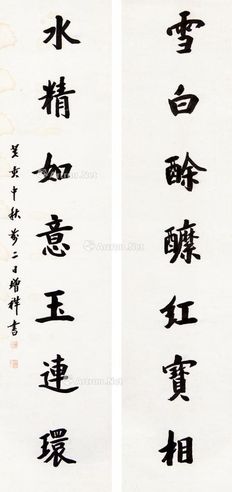 雪白酴醾紅寶相
水精如意玉連環
癸亥中秋前二日增祥書
Artron.Net